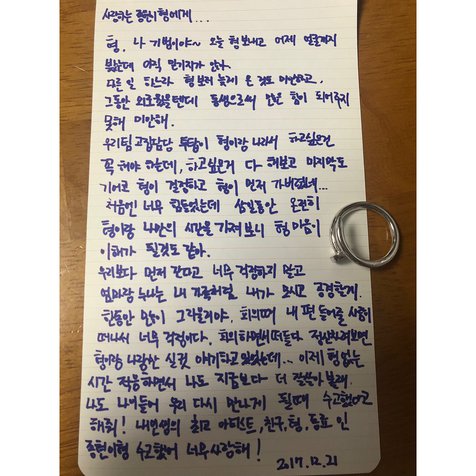 사랑하는 종현이 형에게...
형, 나 기범이야~ 오늘 형 보내고 어제 얼굴까지
봤는데 아직 믿기지가 않아.
다른 일 하느라 형 보러 늦게 온 것도 미안하고,
그동안 외로웠을텐데 동생으로써 많은 힘이 되어주지
못해 미안해.
우리팀 고집담당 투탑이 형이랑 나라서 하고싶은건
꼭 해야 했는데, 하고싶은거 다 해보고 마지막도
기어코 형이 결정하고 형이 먼저 가버렸네...
처음엔 너무 힘들었는데 삼일동안 온전히
형이랑 나만의 시간을 가져보니 형 마음이
이해가 될것도 같아.
우리보다 먼저 간다고 너무 걱정하지 말고
엄마랑 누나는 내 가족처럼 내가 모시고 공경할게.
한동안 많이 그리울거야. 회의때 내 편 들어줄 사람이
떠나서 너무 걱정이다. 회의하면서 떠들다 정신차려보면
형이랑 나랑만 실컷 얘기하고 있었는데... 이제 형 없는
시간 적응하면서 나도 지금보다 더 잘살아 볼래.
나도 나이들어 우리 다시 만나게 될때에 수고했다고
해줘! 내 인생의 최고 아티스트, 친구, 형, 동료 인
종현이형 수고했어 너무 사랑해!
2017.12.21